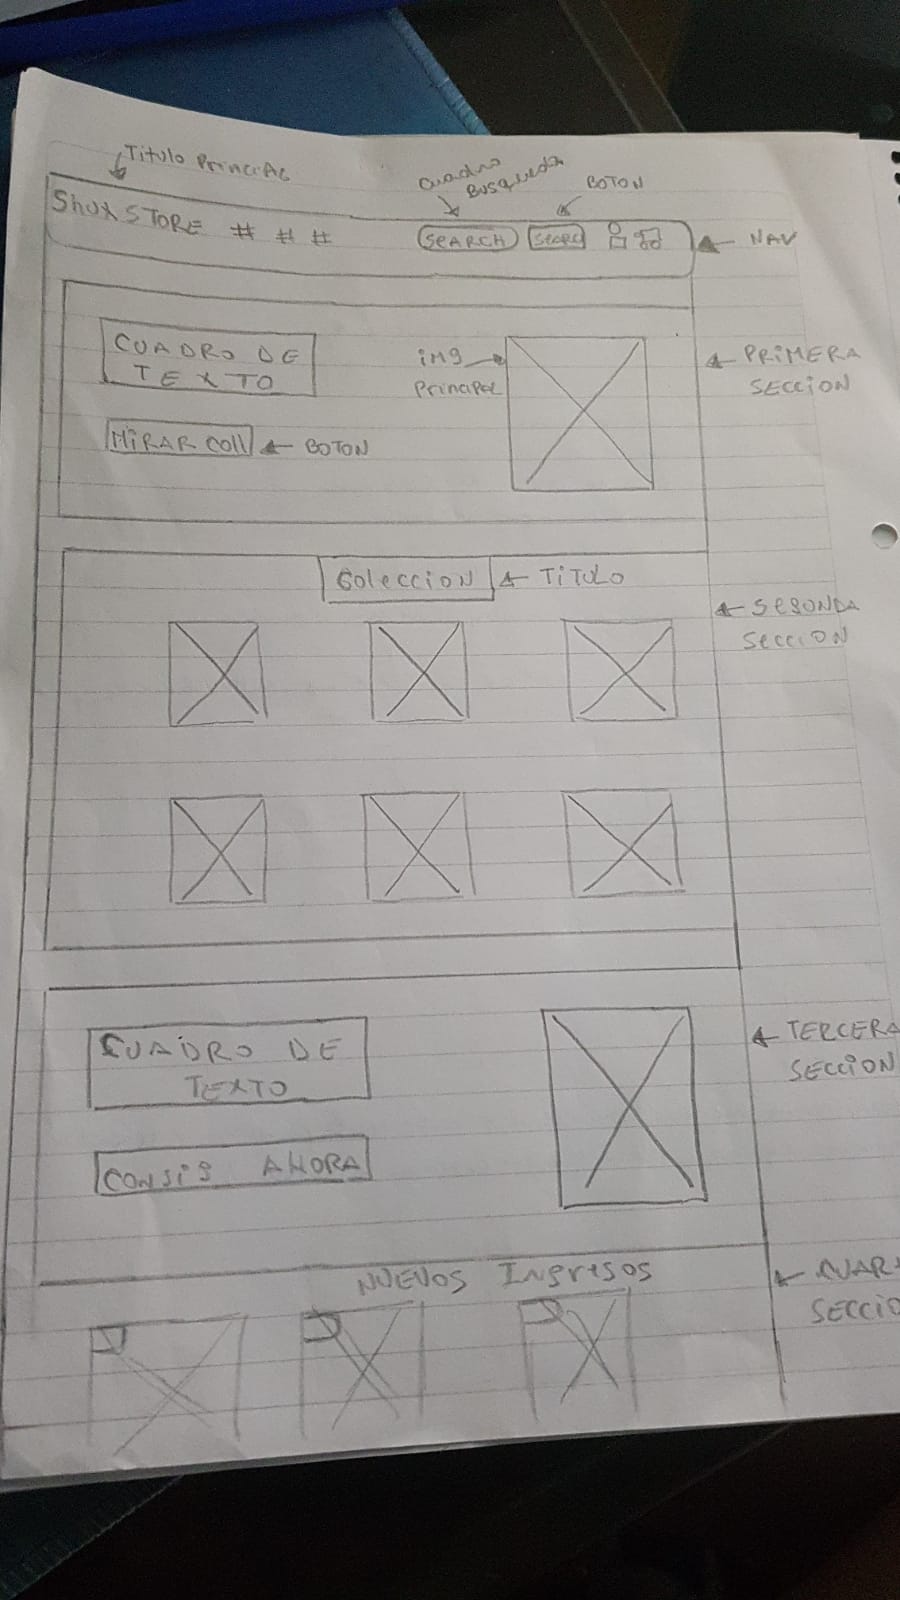 Titulo Principal
Cuadro
Busqueda
BOTON
STORE # # #
SEARCH
NAV
CUADRO DE
TEXTO
img
Principal
PRIMERA
SECCION
MIRAR COLL
BOTON
Coleccion
TiTULO
SEGUNDA
SECCION
CUADRO DE
TEXTO
TERCERA
SECCION
AHORA
NUEVOS Ingresos
CUAR
SECCIO